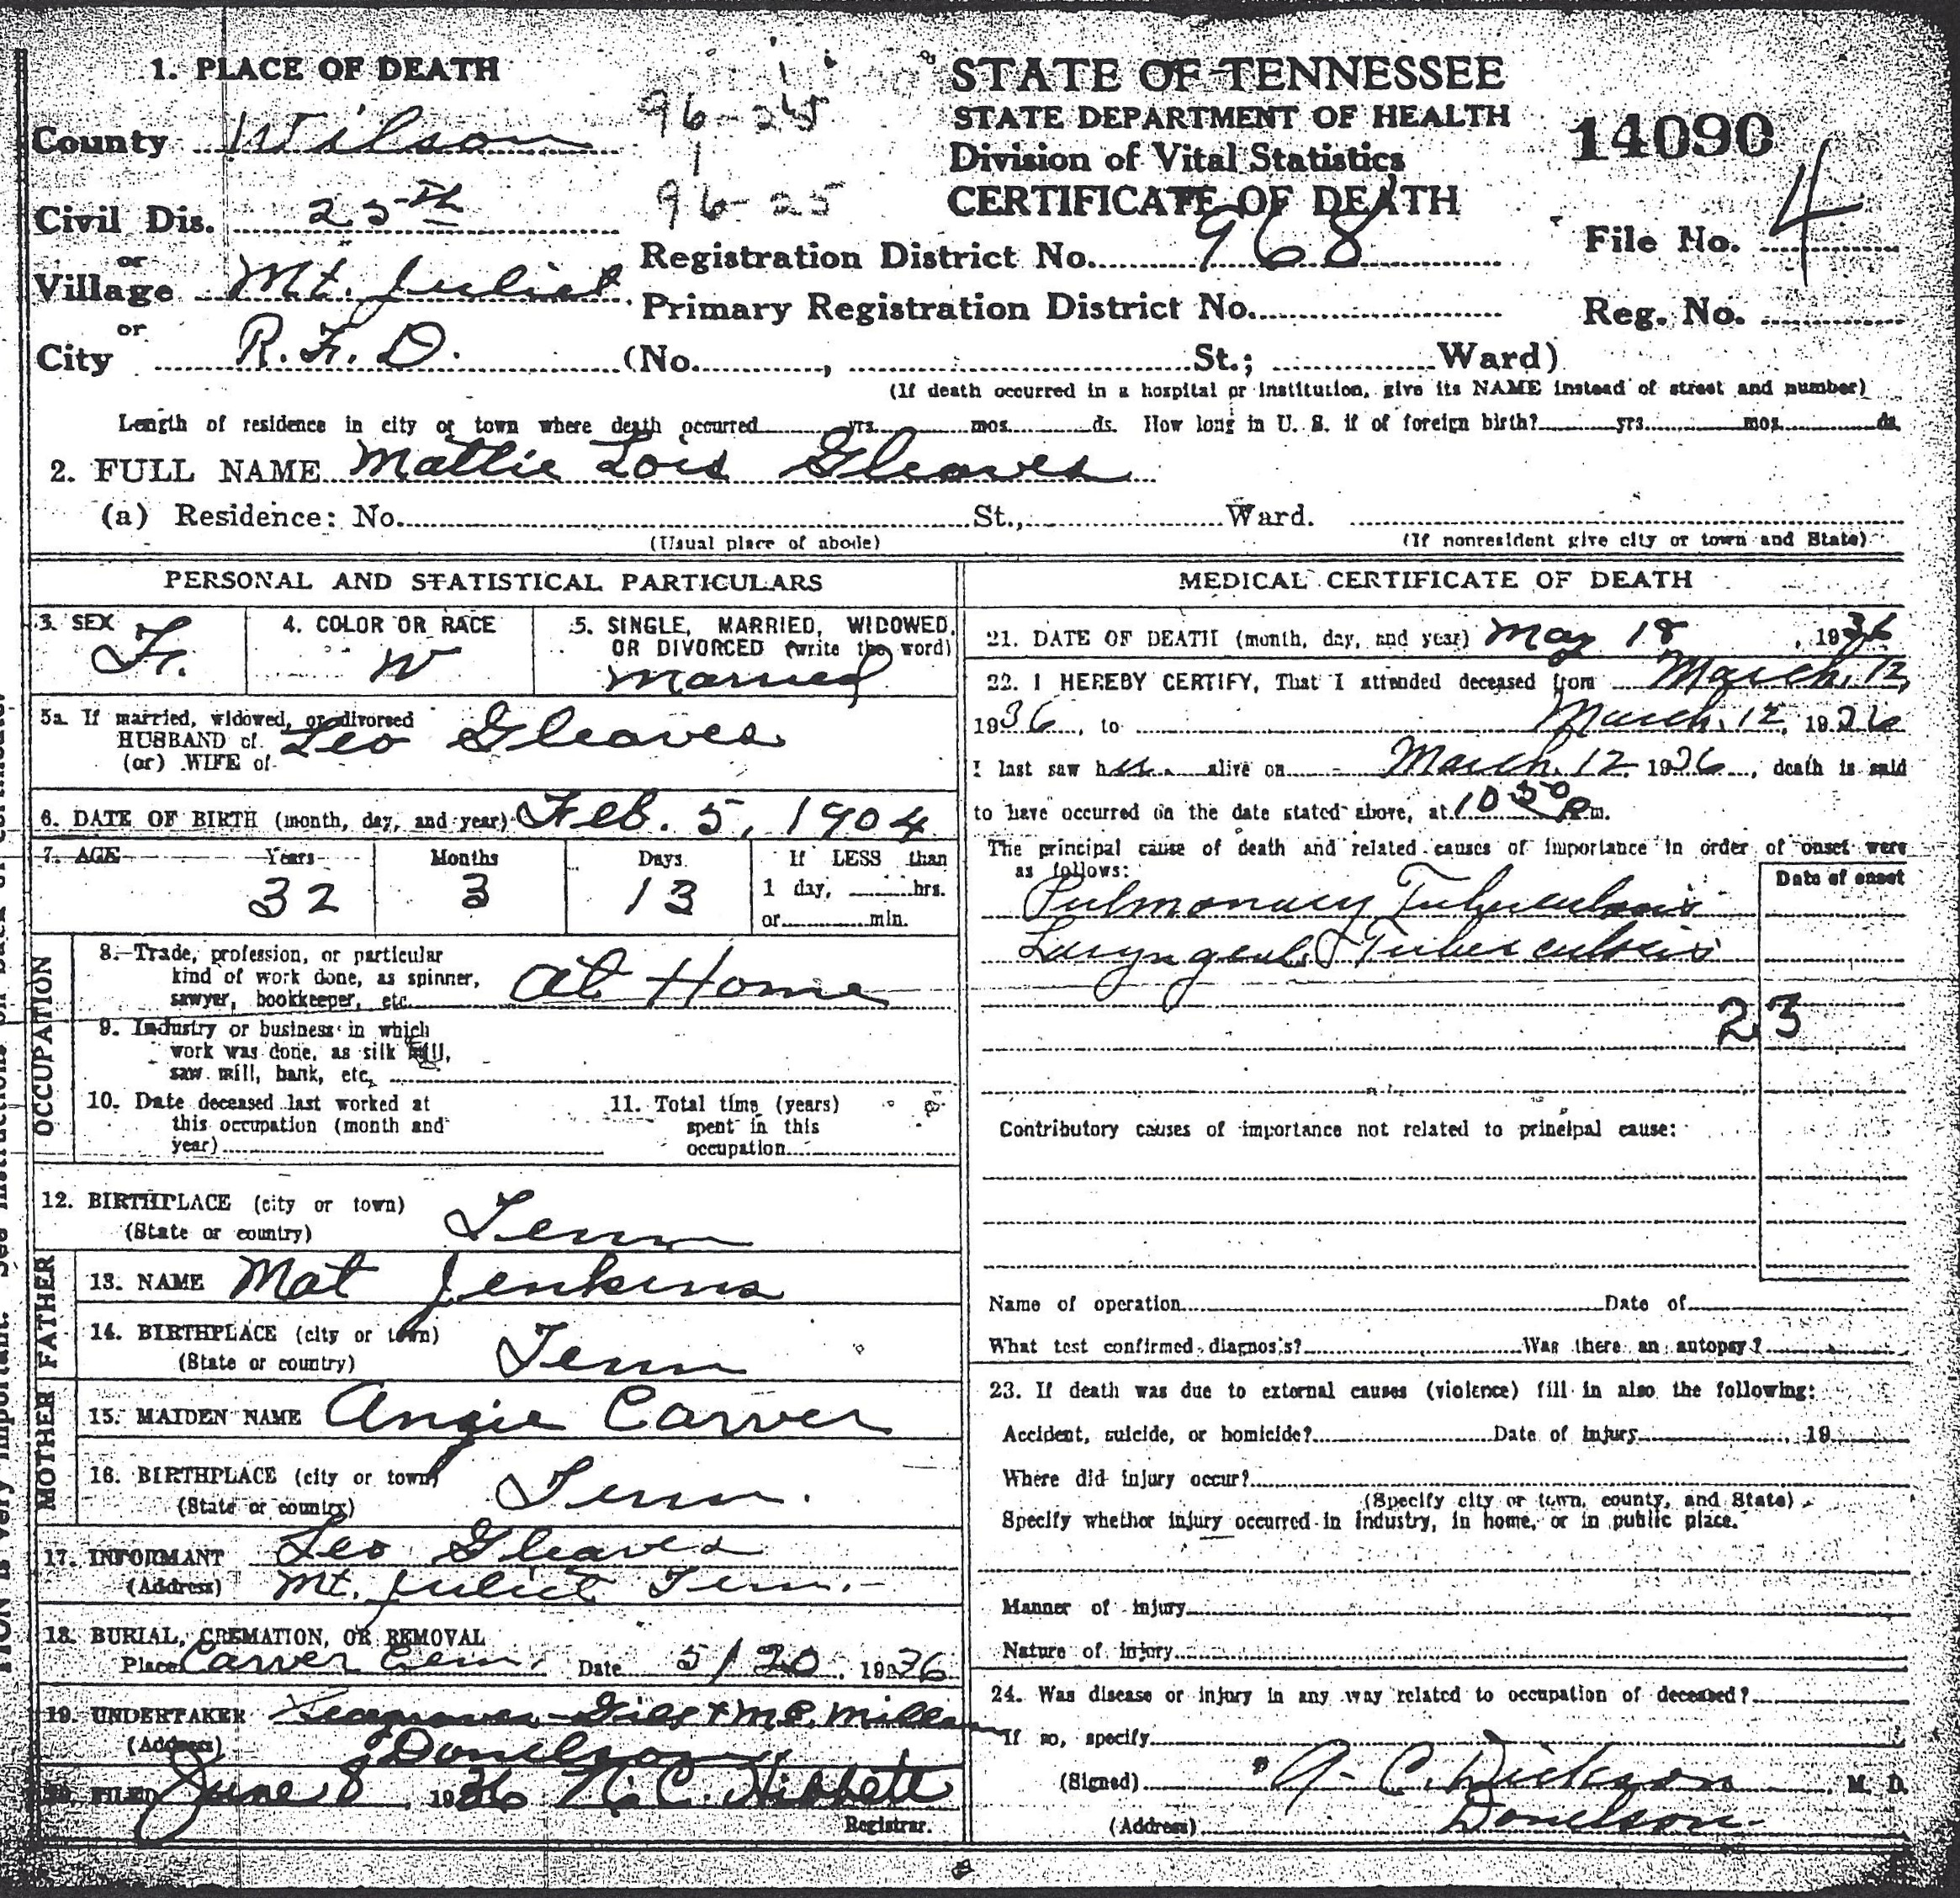 1. PLACE OF DEATH
County Wilson
Civil Dis. 25th
or
Village Mt. Juliet
or
City R. F. D. (No. , St.; Ward)
96-25
1
96-25
STATE OF TENNESSEE
STATE DEPARTMENT OF HEALTH
Division of Vital Statistics
CERTIFICATE OF DEATH
14090
Registration District No. 968
File No. 4
Primary Registration District No.
Reg. No.
(If death occurred in a hospital or institution, give its NAME instead of street and number)
Length of residence in city or town where death occurred yrs. mos. ds. How long in U. S. if of foreign birth? yrs. mos. ds.
2. FULL NAME Mattie Lois Gleaves
(a) Residence: No. St., Ward.
(Usual place of abode) (If nonresident give city or town and State)
PERSONAL AND STATISTICAL PARTICULARS
3. SEX F.
4. COLOR OR RACE W
5. SINGLE, MARRIED, WIDOWED,
OR DIVORCED (write the word)
Married
5a. If married, widowed, or divorced
HUSBAND of
(or) WIFE of Leo Gleaves
6. DATE OF BIRTH (month, day, and year) Feb. 5, 1904
7. AGE Years Months Days If LESS than
32 3 13 1 day, hrs.
or min.
OCCUPATION
8. Trade, profession, or particular
kind of work done, as spinner,
sawyer, bookkeeper, etc. at Home
9. Industry or business in which
work was done, as silk mill,
saw mill, bank, etc.
10. Date deceased last worked at
this occupation (month and
year)
11. Total time (years)
spent in this
occupation
12. BIRTHPLACE (city or town)
(State or country) Tenn
FATHER
13. NAME Mat Jenkins
14. BIRTHPLACE (city or town)
(State or country) Tenn
MOTHER
15. MAIDEN NAME Angie Carver
16. BIRTHPLACE (city or town)
(State or country) Tenn.
17. INFORMANT Leo Gleaves
(Address) Mt. Juliet Tenn.
18. BURIAL, CREMATION, OR REMOVAL
Place Carver Cem. Date 5/20, 1936
19. UNDERTAKER
(Address) Donelson
20. FILED June 8, 1936 N. C. Hibbett
Registrar.
MEDICAL CERTIFICATE OF DEATH
21. DATE OF DEATH (month, day, and year) May 18, 1936
22. I HEREBY CERTIFY, That I attended deceased from March, 12,
1936, to March. 12, 1936
I last saw her alive on March. 12 1936, death is said
to have occurred on the date stated above, at 10 50 P m.
The principal cause of death and related causes of importance in order of onset were
as follows:
Date of onset
Pulmonary Tuberculosis
Laryngeal Tuberculosis
23
Contributory causes of importance not related to principal cause:
Name of operation Date of
What test confirmed diagnosis? Was there an autopsy?
23. If death was due to external causes (violence) fill in also the following:
Accident, suicide, or homicide? Date of injury , 19
Where did injury occur?
(Specify city or town, county, and State)
Specify whether injury occurred in industry, in home, or in public place.
Manner of injury
Nature of injury
24. Was disease or injury in any way related to occupation of deceased?
If so, specify
(Signed) C. Dickson, M. D.
(Address) Donelson